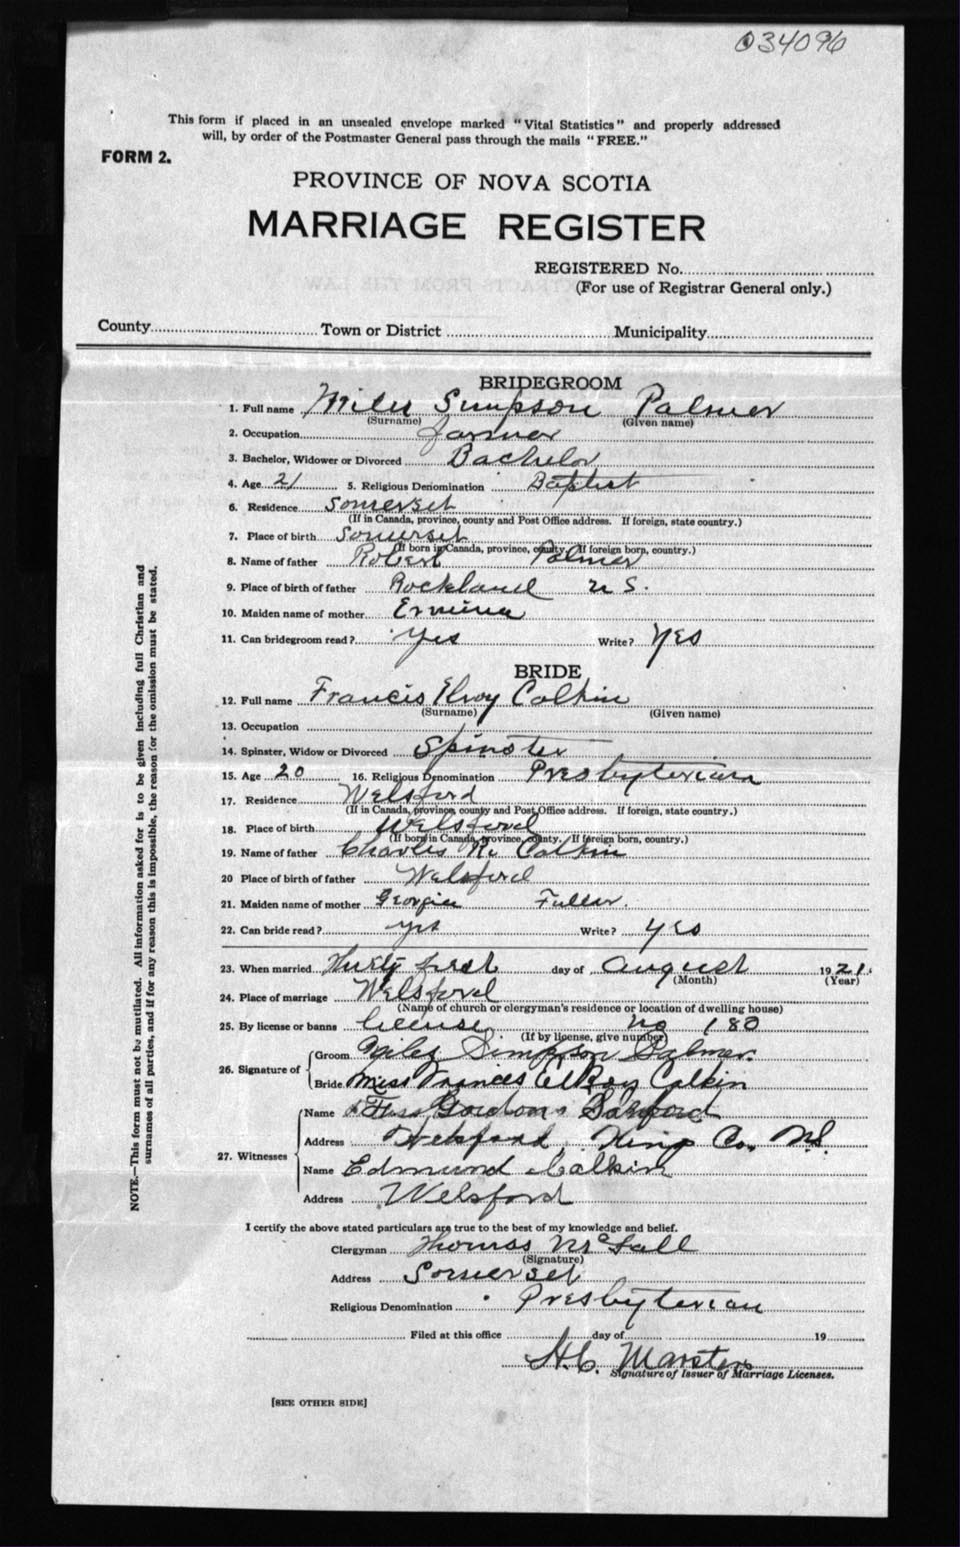 034096
This form if placed in an unsealed envelope marked "Vital Statistics" and properly addressed
will, by order of the Postmaster General pass through the mails "FREE."
FORM 2.
PROVINCE OF NOVA SCOTIA
MARRIAGE REGISTER
REGISTERED No.
(For use of Registrar General only.)
County Town or District Municipality
BRIDEGROOM
1. Full name Miles Simpson Palmer
(Surname) (Given name)
2. Occupation farmer
3. Bachelor, Widower or Divorced Bachelor
4. Age 21 5. Religious Denomination Baptist
6. Residence Somerset
(If in Canada, province, county and Post Office address. If foreign, state country.)
7. Place of birth Somerset
(If born in Canada, province, county. If foreign born, country.)
8. Name of father Robert Palmer
9. Place of birth of father Rockland U S.
10. Maiden name of mother Ermina
11. Can bridegroom read? Yes Write? Yes
BRIDE
12. Full name Francis Elroy Calkin
(Surname) (Given name)
13. Occupation
14. Spinster, Widow or Divorced Spinster
15. Age 20 16. Religious Denomination Presbyterian
17. Residence Welsford
(If in Canada, province, county and Post Office address. If foreign, state country.)
18. Place of birth Welsford
(If born in Canada, province, county. If foreign born, country.)
19. Name of father Charles Calkin
20 Place of birth of father Welsford
21. Maiden name of mother Georgia Fuller.
22. Can bride read? yes Write? Yes
23. When married Thirty first day of August 1921.
(Month) (Year)
24. Place of marriage Welsford
(Name of church or clergyman's residence or location of dwelling house)
25. By license or banns license no 180
(If by license, give number)
26. Signature of
Groom Miles Simpson Palmer.
Bride Miss Frances ElRoy Calkin
27. Witnesses
Name Gordon Sanford
Address Welsford, Kings Co. N.S.
Name Edmund Calkin
Address Welsford
I certify the above stated particulars are true to the best of my knowledge and belief.
Clergyman Thomas
(Signature)
Address Somerset
Religious Denomination Presbyterian
Filed at this office day of 19
H.C. Marsters
Signature of Issuer of Marriage Licenses.
[SEE OTHER SIDE]
NOTE.—This form must not be mutilated. All information asked for is to be given including full Christian and
surnames of all parties, and if for any reason this is impossible, the reason for the omission must be stated.